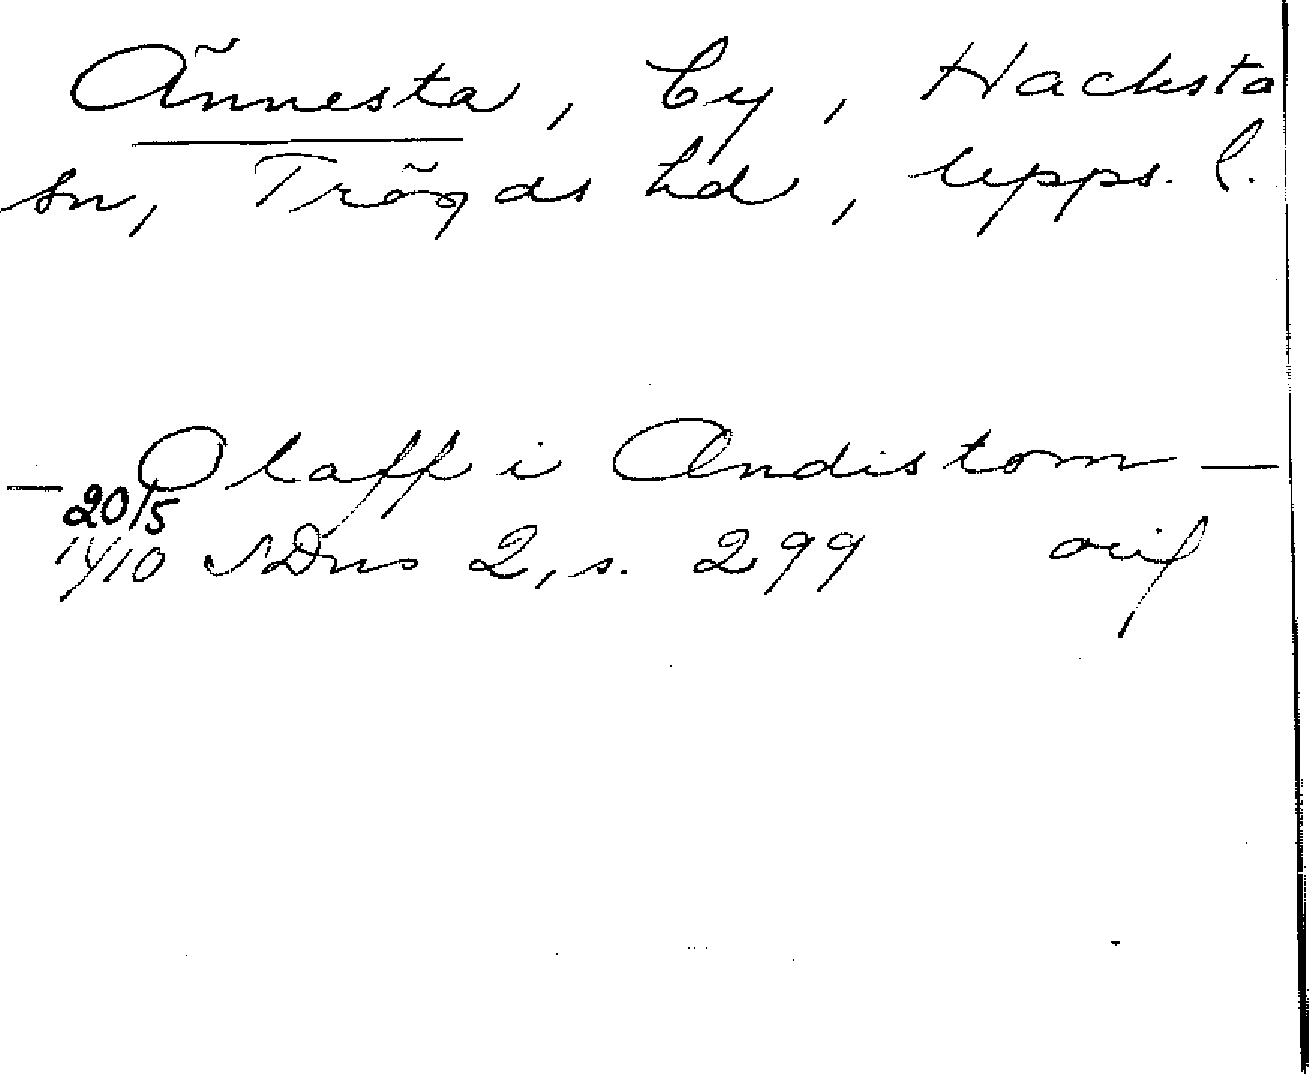 Ännesta, by, Hacksta
sn, Trögds hd, Upps. l.
— Olaff i Andistom —
20/5
14/10 SDns 2, s. 299 orig